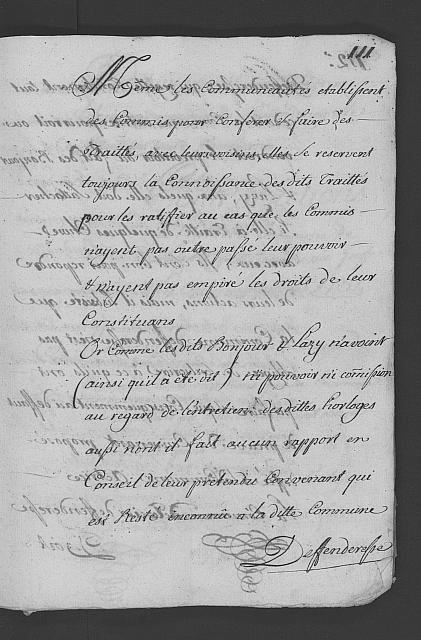 111
Même les Communautés etablissent
des Commis pour Conferer & faire des
Traittés, avec leurs voisins, elles se reservent
toujours la Connoissance des dits Traittés
pour les ratifier au cas que les Commis
n'ayent pas outre passé leur pouvoir
& n'ayent pas empiré les droits de leur
Constituans
Or Comme les dits Bonjour & Lazy n'avoint
(ainsi qu'il a ete dit) ni pouvoir ni comission
au regard de l'entretien des dittes horloges
aussi n'ont il fait aucun rapport en
Conseil de leur pretendu Convenant qui
est Resté inconnue a la ditte Commune
Deffenderesse